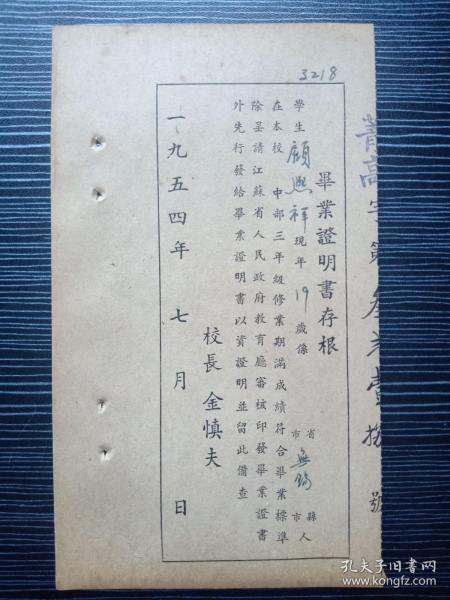 3218
畢業證明書存根
學生顧興祥現年19歲係 省市 無錫 縣市 人
在本校 中部三年級修業期滿成績符合畢業標準
除呈請江蘇省人民政府教育廳審核印發畢業證書
外先行發給畢業證明書以資證明並留此備查
校長 金慎夫
一九五四年 七 月 日
菁高字第 號
孔夫子旧书网
www.kongfz.com